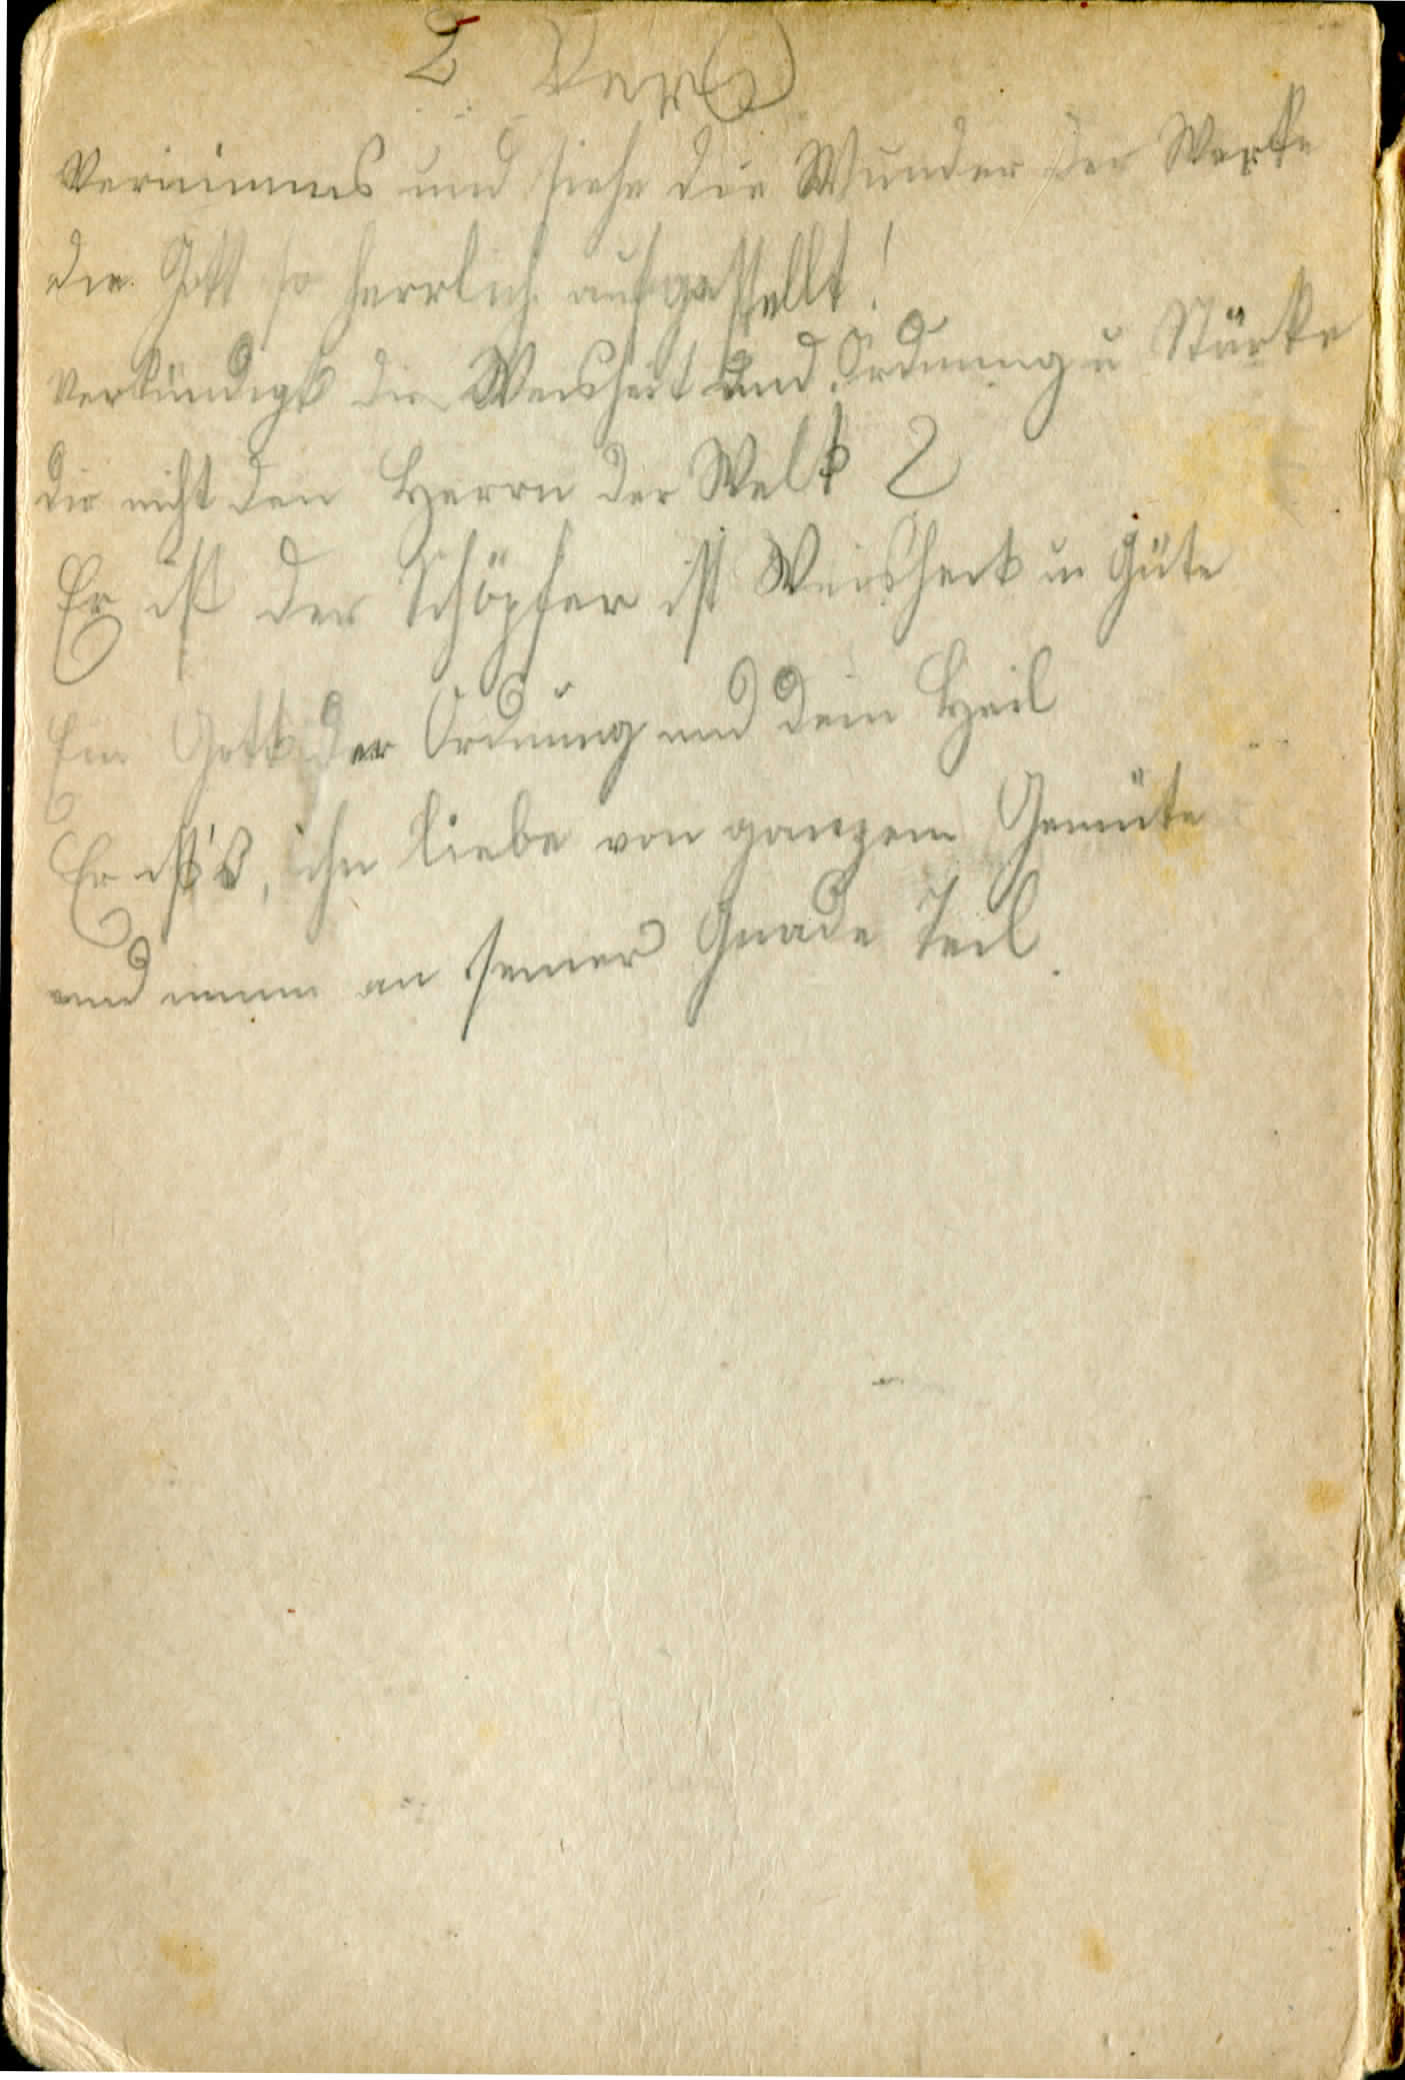 2 Vers
Vernimms und siehe die Wunder der Werke
die Gott so herrlich aufgestellt!
Verkündigt die Weisheit und Ordnung u Stärke
dir nicht den Herrn der Welt ?
Er ist der Schöpfer ist Weisheit u Güte
Ein Gott der Ordnung und dein Heil
Er ist's, ihn liebe von ganzem Gemüte
und nimm an seiner Gnade Teil.